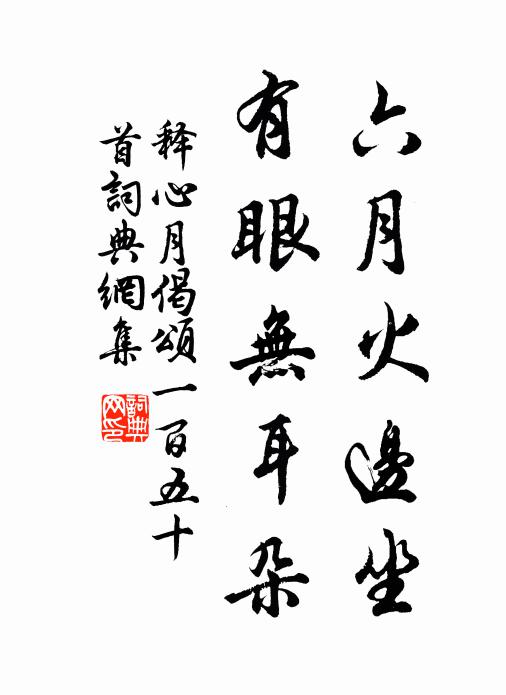 六月火邊坐
有眼無耳朵
释心月偈頌一百五十
首詞典網集
詞典网印